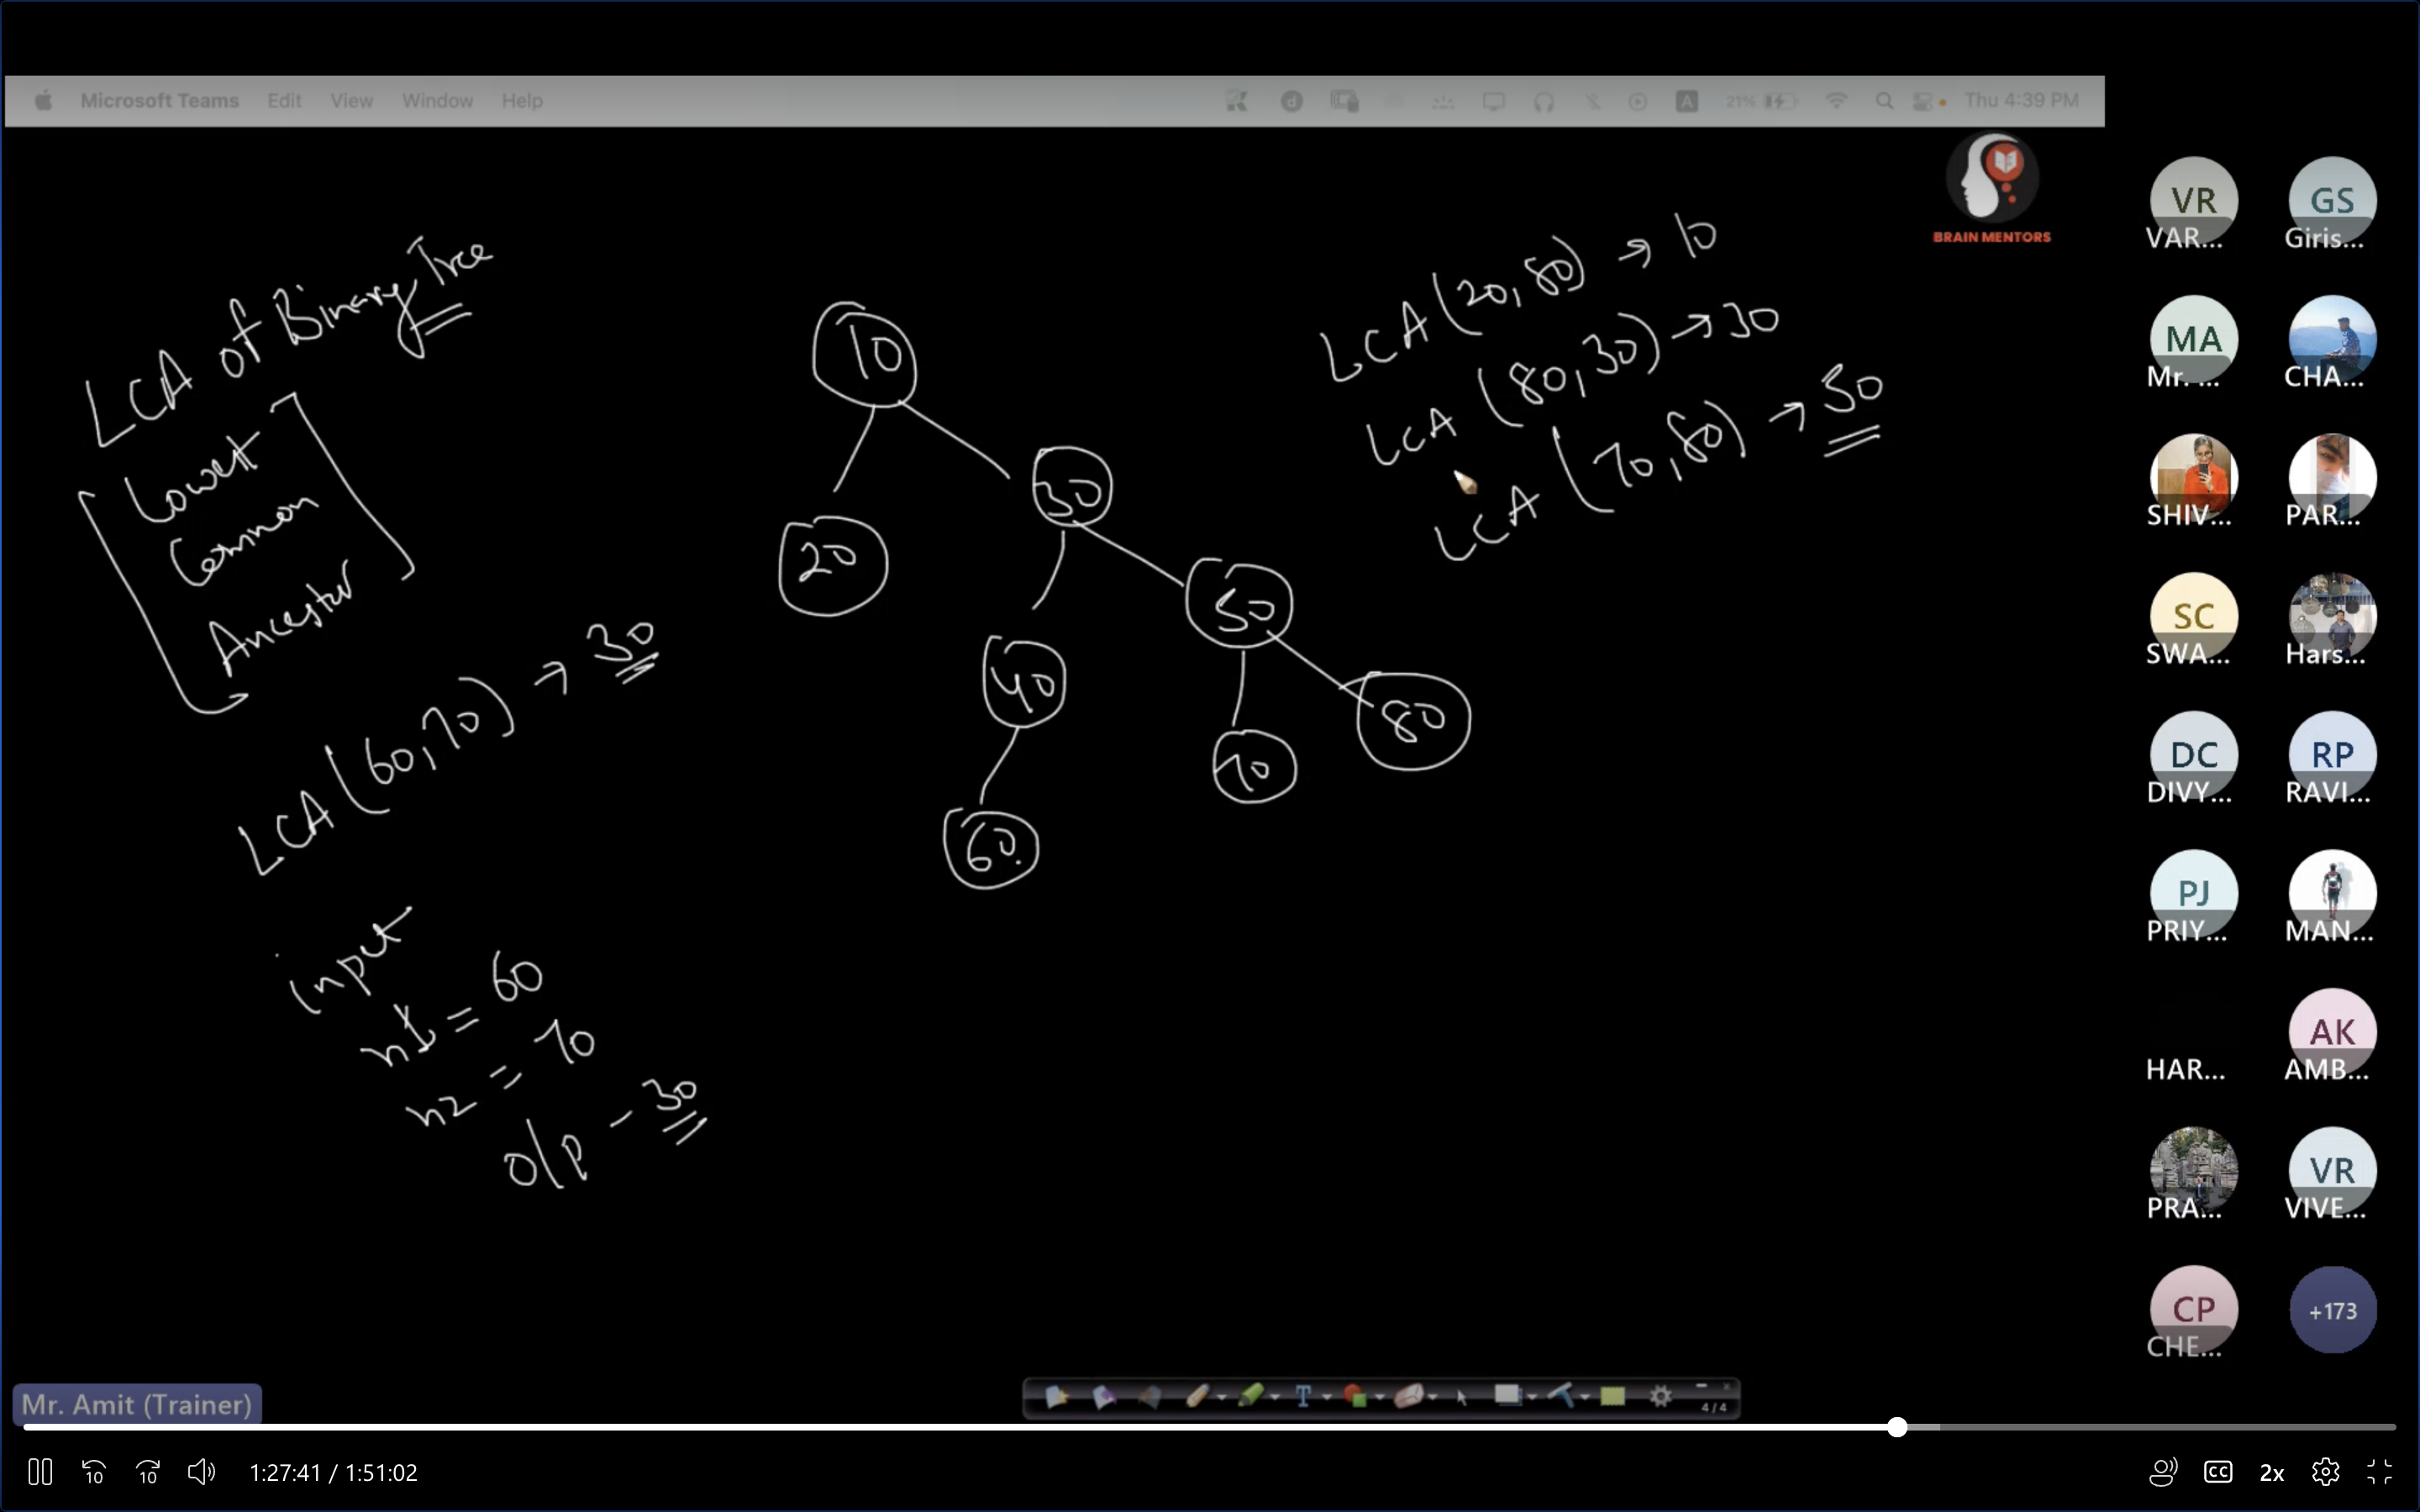 Microsoft Teams Edit View Window Help
21% Thu 4:39 PM
BRAIN MENTORS
LCA of Binary Tree
Lowest
Common
Ancestor
LCA (60,70) → 30
input
n1 = 60
n2 = 70
o/p - 30
10
20
30
40
50
60
70
80
LCA (20, 80) → 10
LCA (80, 30) → 30
LCA (70, 80) → 50
VR
VAR...
GS
Giris...
MA
Mr. ...
CHA...
SHIV...
PAR...
SC
SWA...
Hars...
DC
DIVY...
RP
RAVI...
PJ
PRIY...
MAN...
HAR...
AK
AMB...
PRA...
VR
VIVE...
CP
CHE...
+173
Mr. Amit (Trainer)
T
4/4
10
10
1:27:41 / 1:51:02
CC
2x